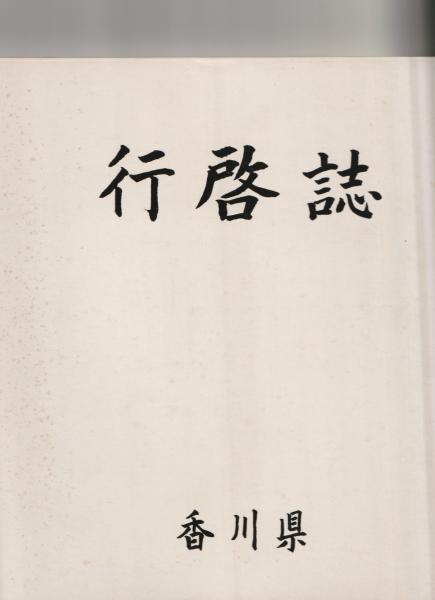 行啓誌
香川県